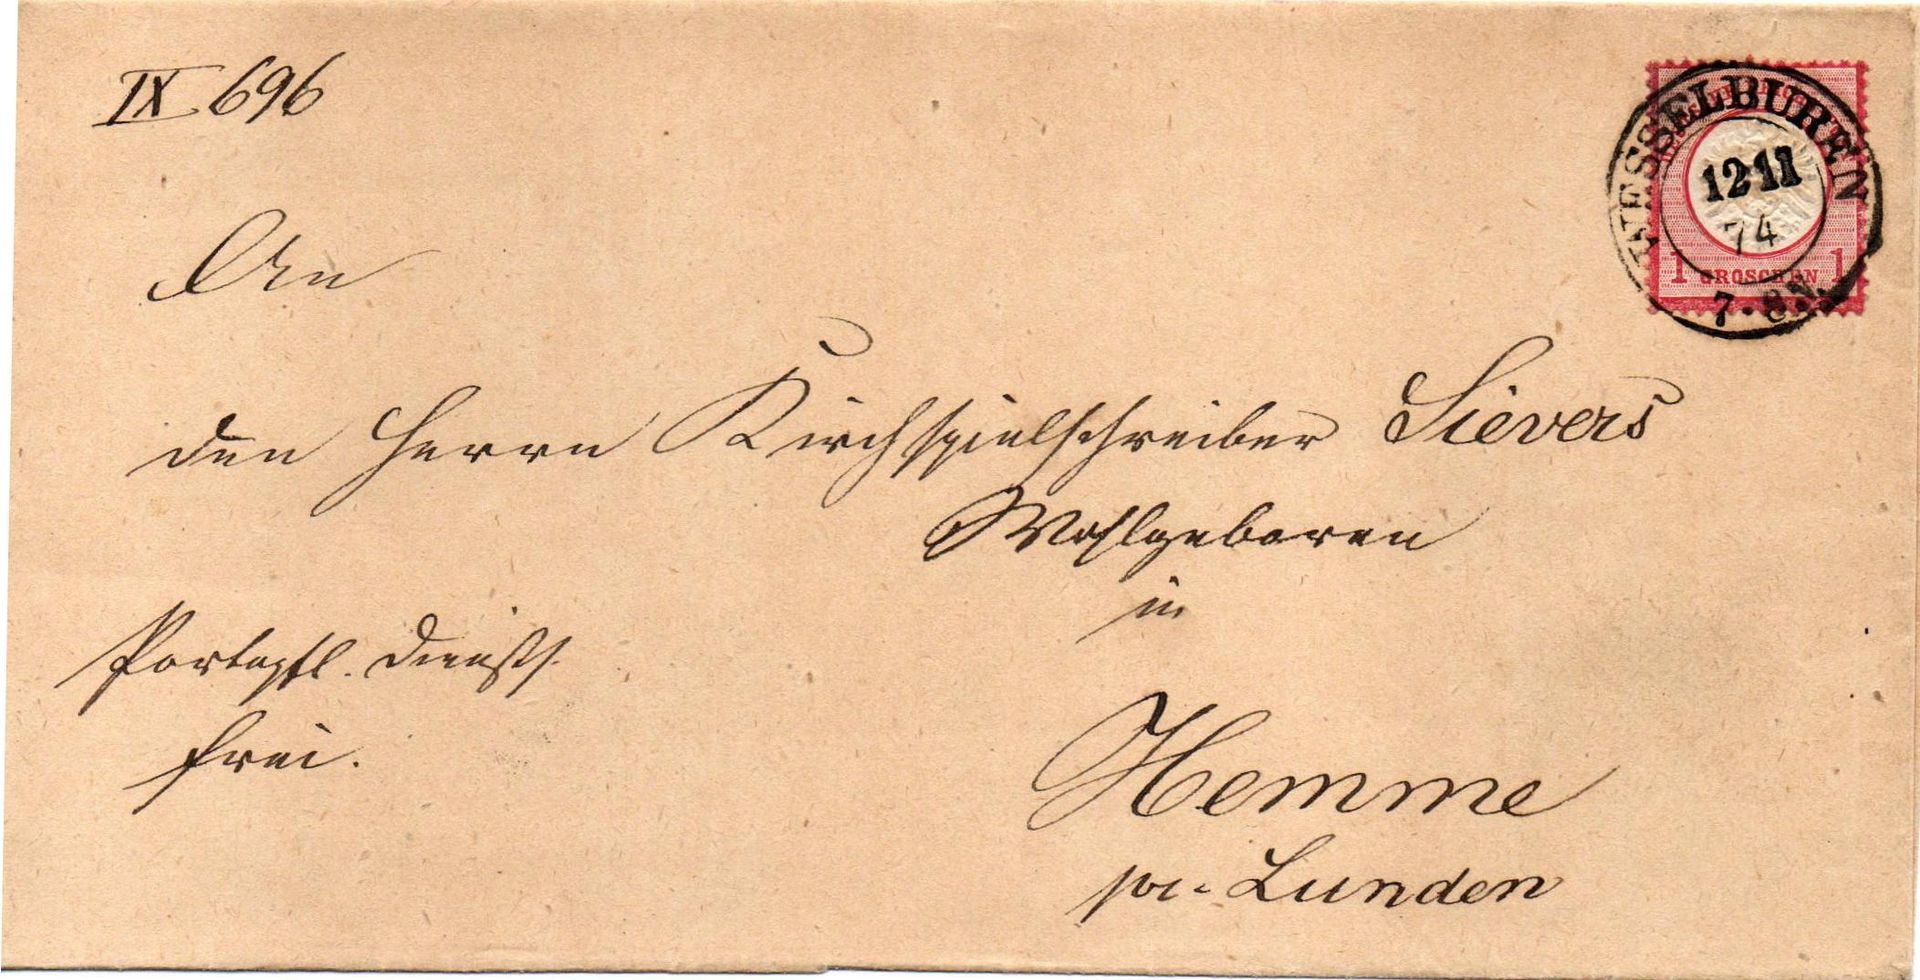 IX 696
WESSELBUREN
12 11
74
7-8N.
1 GROSCHEN 1
An
den Herrn Kirchspielschreiber Sievers
Wohlgeboren
in
Portopfl. Diensts.
frei.
Hemme
pr. Lunden